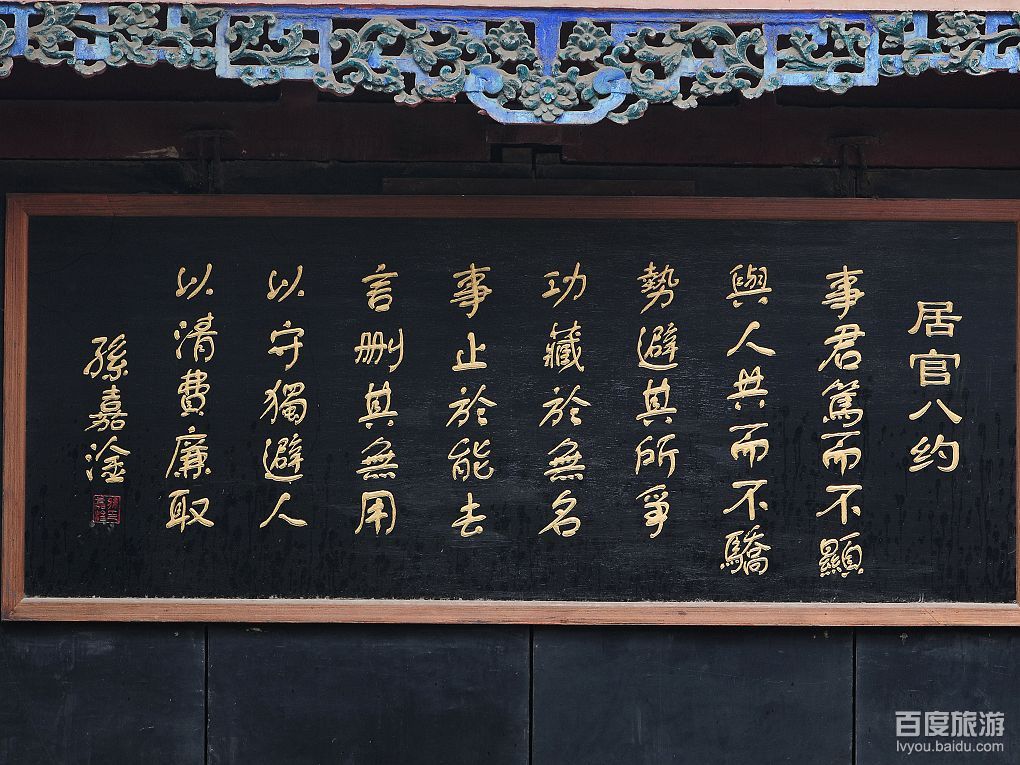 居官八约
事君篤而不顯
與人共而不驕
勢避其所爭
功藏於無名
事止於能去
言刪其無用
以守獨避人
以清費廉取
孫嘉淦
百度旅游
lvyou.baidu.com